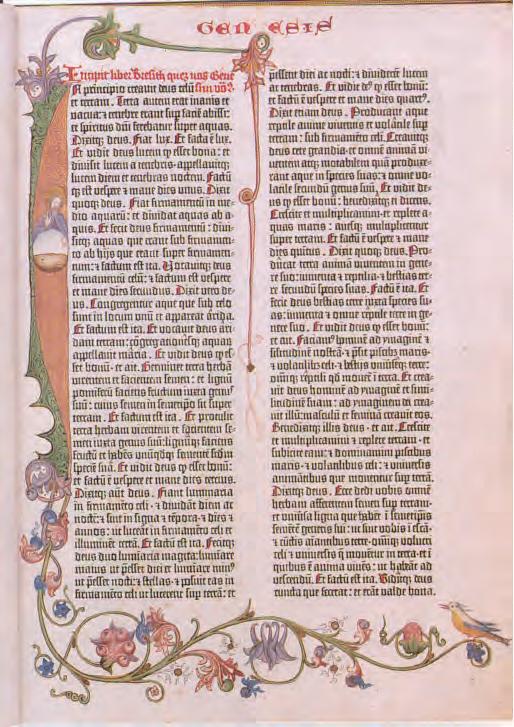 GENESIS
Incipit liber Bresith quez nos Gene
In principio creavit deus celū sim vo9?
et terram. Terra autem erat inanis et
vacua: et tenebre erant sup faciē abissi:
et spiritus dñi ferebatur super aquas.
Dixitq; deus. Fiat lux. Et facta ē lux.
Et vidit deus lucem qꝫ esset bona: et
divisit lucem a tenebris·appellavitq;
lucem diem et tenebras noctem. Factūq;
qꝫ est vespere et mane dies unus. Dixit
quoq; deus. Fiat firmamentū in me-
dio aquarū: et dividat aquas ab a-
quis. Et fecit deus firmamentū: divi-
sitq; aquas que erant sub firmamen-
to ab hijs que erant super firmamen-
tum: et factum est ita. Vocavitq; deus
firmamentū celū: et factum est vespere
et mane dies secundus. Dixit vero de-
us. Congregentur aque que sub celo
sunt in locum unū et appareat arida.
Et factum est ita. Et vocavit deus ari-
dam terram: cōgregacionesq; aquaꝝ
appellavit maria. Et vidit deus qꝫ es-
set bonū·et ait. Germinet terra herbā
virentem et facientem semen: et lignū
pomiferū faciens fructum iuxta genus
suū: cuius semen in semetipo sit super
terram. Et factum est ita. Et protulit
terra herbam virentem et facientem se-
men iuxta genus suū: lignūq; faciens
fructū et habēs unūqdq; sementē scdm
speciē suā. Et vidit deus qꝫ esset bonū:
et factū ē vespere et mane dies tercius.
Dixitq; aūt deus. Fiant luminaria
in firmamēto celi·et dividāt diem ac
noctē: et sint in signa et tēpora·et dies et
annos: ut luceāt in firmamēto celi et
illuminēt terrā. Et factum est ita. Fecitq;
deus duo luminaria magna: luminare
maius ut pesset diei et luminare min9
ut pesset nocti: et stellas·et posuit eas in
firmamēto celi ut lucerent sup terrā: et
pessent diei ac nocti: et dividerēt lucem
ac tenebras. Et vidit deꝰ qꝫ esset bonū:
et factū ē vespere et mane dies quartꝰ.
Dixit etiam deus. Producant aque
reptile anime viventis et volatile sup
terram: sub firmamēto celi. Creavitq;
deus cete grandia·et omnē animā vi-
ventem atq; motabilem quā produxe-
rant aque in species suas: et omne vo-
latile secundū genus suū. Et vidit de-
us qꝫ esset bonū: benedixitq; eis dicens.
Crescite et multiplicamini·et replete a-
quas maris: avesq; multiplicentur
super terram. Et factū ē vespere et mane
dies quintus. Dixit quoq; deus. Pro-
ducat terra animā viventem in gene-
re suo: iumenta et reptilia·et bestias ter-
re secundū species suas. Factūq; ē ita. Et
fecit deus bestias terre iuxta species su-
as: iumenta et omne reptile terre in ge-
nere suo. Et vidit deus qꝫ esset bonū:
et ait. Faciamꝰ hominē ad ymaginē et
silitudinē nostrā·et psit piscibꝫ maris·
et volatilibꝫ celi·et bestijs univseq; terre:
omniq; reptili qd movet i terra. Et crea-
vit deus hominē ad ymaginē et simi-
litudinē suam: ad ymaginem dei crea-
vit illū: masculū et feminā creavit eos.
Benedixitq; illis deus·et ait. Crescite
et multiplicamini et replete terram·et
subicite eam: et dominamini piscibus
maris·et volatilibus celi: et universis
animātibus que moventur sup terrā.
Dixitq; deus. Ecce dedi vobis omnē
herbam afferentem semen sup terram·
et univsa ligna que habēt i semetipis
semētē generis sui: ut sint vobis i escā·
et cūctis aīantibus terre·oīniq; volucri
celi et universis q̄ moventur in terra·et i
quibus ē anima vivēs: ut habeāt ad
vescendū. Et factū est ita. Viditq; deus
cuncta que fecerat: et erāt valde bona.